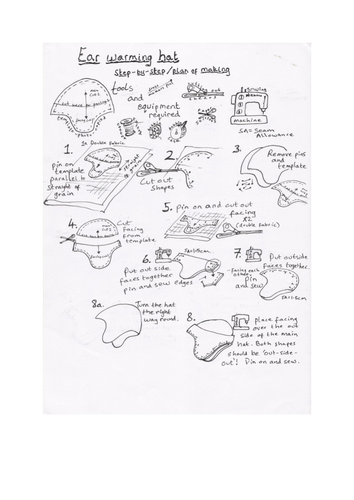 Ear warming hat
Step-by-step/plan of making
tools
and
equipment
required
Sewing
Machine
SA = Seam
Allowance
1.
In Double Fabric
Pin on
template
parallel to
straight of
grain
2.
Cut out
shapes
3.
Remove pins
and
template
4.
Cut
Facing
From
template
5. Pin on and cut out
facing
X2
(double Fabric)
6.
SA=1.5cm
Put out side
faces together
pin and sew edges
7.
Put outside
faces together.
-facing each other
Pin
and
sew
SA=1.5cm
8a.
Turn the hat
the right
way round.
8.
place facing
over the out
side of the main
hat. Both shapes
should be 'out-side-
out'! Pin on and sew.